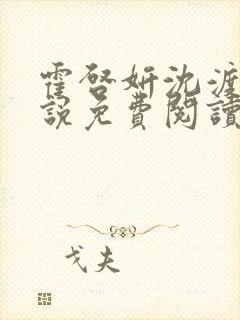 霍啓妍沈渡
說免費閱讀
戈夫